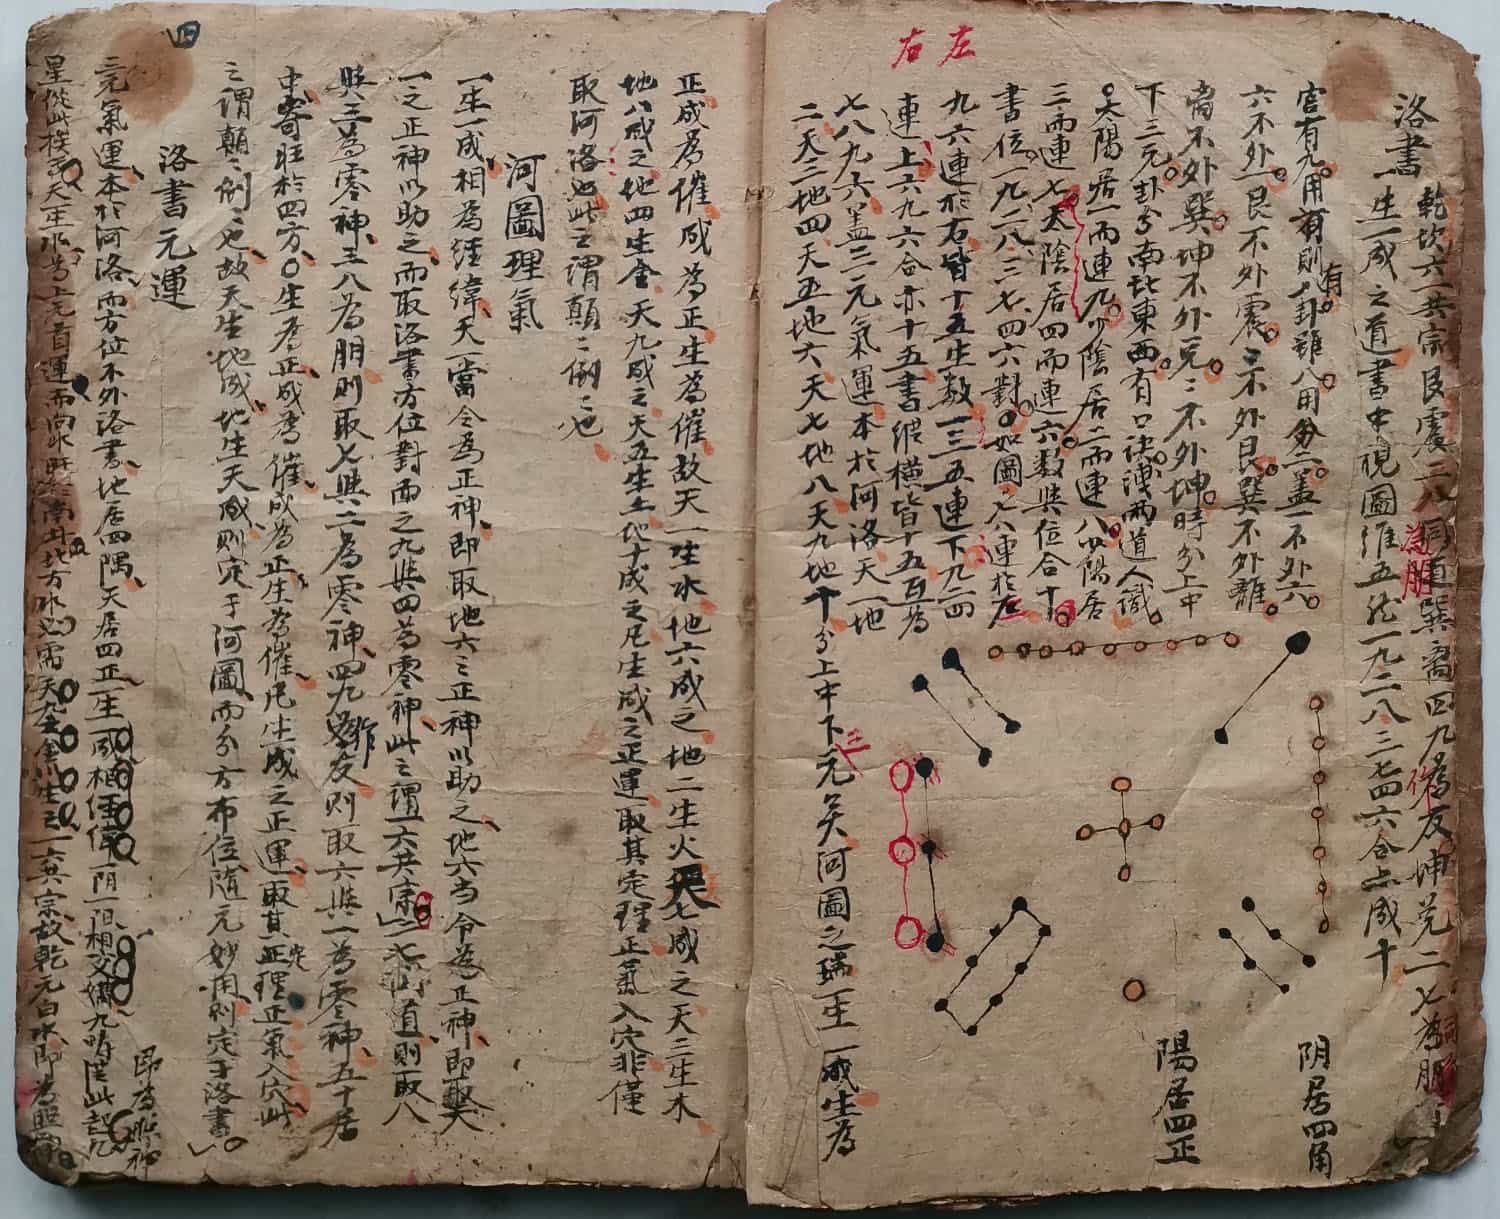 左
右
洛書
乾坎六一共宗艮震二八同道巽离四九為友坤兌二七為朋
一生一成之道書中視圖維五於一九二八三七四六合点成十
宫有九用有則八卦雖八用分二蓋一不外六
六不外一艮不外震三不外艮巽不外離
离不外巽坤不外兌二不外坤時分上中
下三元卦分南北東西有口訣洩兩道人識
太陽居一而連九少陰居二而連八少陽居
三而連七太陰居四而連六数與位合十
書位一九二八三七四六對如圖七八連於左
九六連於右皆十五生数一三五連下九四
連上六九六合亦十五書縱橫皆十五互為
七八九六蓋三元氣運本於河洛天一地
二天三地四天五地六天七地八天九地十分上中下三元矣河圖之瑞一生一成生為
阴居四角
陽居四正
正成為催成為正生為催故天一生水地六成之地二生火天七成之天三生木
地八成之地四生金天九成之天五生土地十成之凡生成之正運取其定理正氣入穴非僅
取河洛也此之謂顛二倒二也
河圖理氣
一生一成相為經緯天一當令為正神即取地六之正神以助之地六当令為正神即取天
一之正神以助之而取洛書方位對面之九與四為零神此之謂一六共宗二七同道則取八
與三為零神三八為朋則取七與二為零神四九作友則取六與一為零神五十居
中寄旺於四方生為正成為催成為正生為催凡生成之正運取其定理正氣入穴此
之謂顛二倒二也故天生地成地生天成則定于河圖而分方布位隨元妙用則定于洛書
洛書元運
三元氣運本於河洛而方位不外洛書地居四隅天居四正一生一成相經緯一阴一陽相交媾九疇從此起九
星從此挨天一生水為上元首運而向水旺於南北方水必需天九生金以生之一六共宗故乾元白水即為照神
即為照神
四